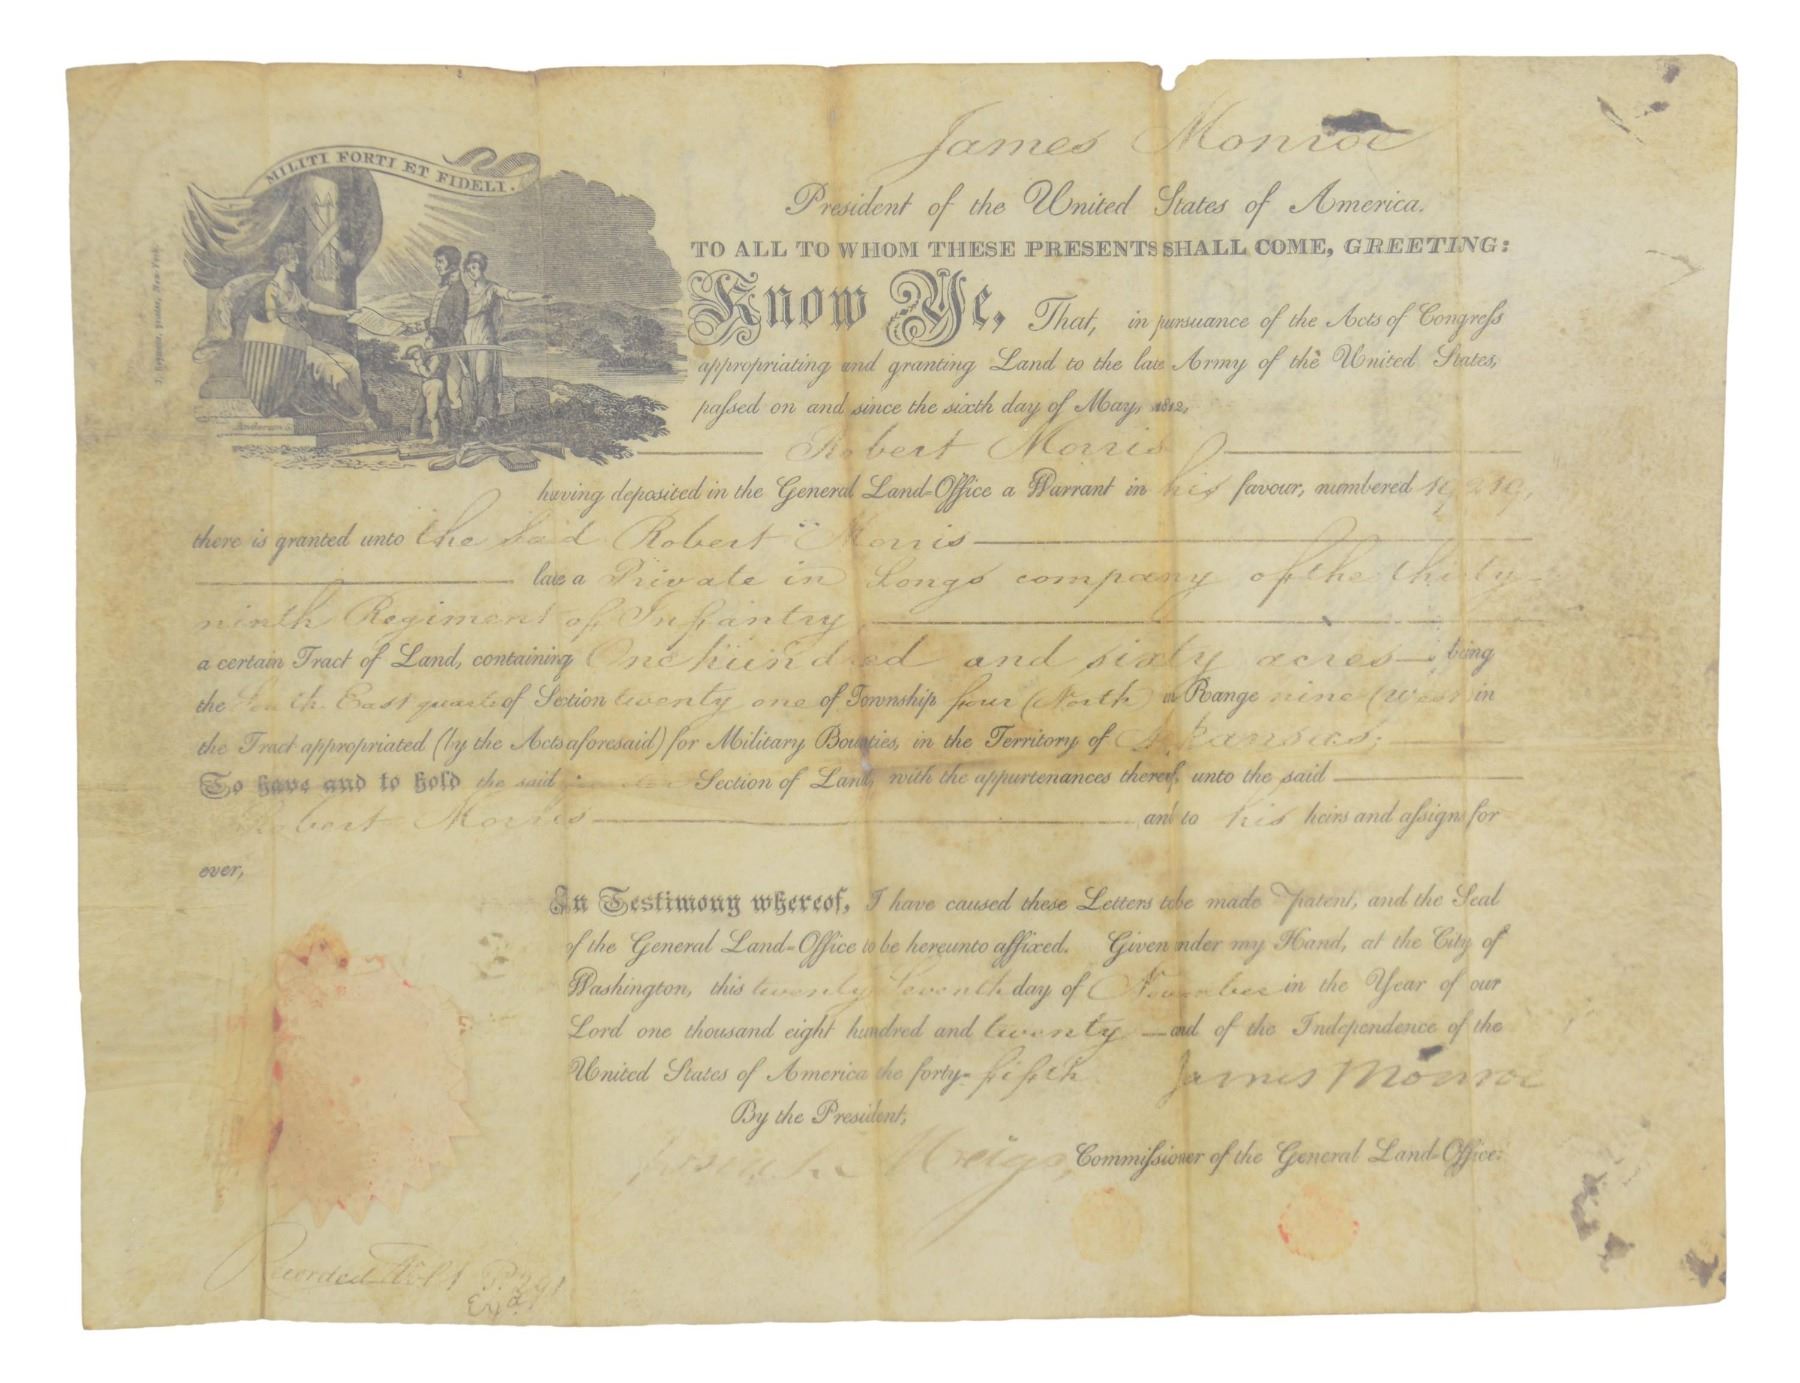 MILITI FORTI ET FIDELI.
James Monroe
President of the United States of America.
TO ALL TO WHOM THESE PRESENTS SHALL COME, GREETING:
Know Ye, That, in pursuance of the Acts of Congress
appropriating and granting Land to the late Army of the United States,
passed on and since the sixth day of May, 1812,
Robert Morris
having deposited in the General Land-Office a Warrant in his favour, numbered
there is granted unto the said Robert Morris
late a Private in Longs company of the thirty
ninth Regiment of Infantry
a certain Tract of Land, containing One hundred and sixty acres being
the South East quarter of Section twenty one of Township four (North) in Range nine (west) in
the Tract appropriated (by the Acts aforesaid) for Military Bounties, in the Territory of Arkansas;
To have and to hold the said Section of Land, with the appurtenances thereof, unto the said
Robert Morris and to his heirs and assigns for
ever,
In Testimony whereof, I have caused these Letters to be made Patent, and the Seal
of the General Land-Office to be hereunto affixed. Given under my Hand, at the City of
Washington, this twenty Seventh day of November in the Year of our
Lord one thousand eight hundred and twenty and of the Independence of the
United States of America the forty-fifth
James Monroe
By the President,
Josiah Meigs, Commissioner of the General Land-Office.
Recorded Vol 1